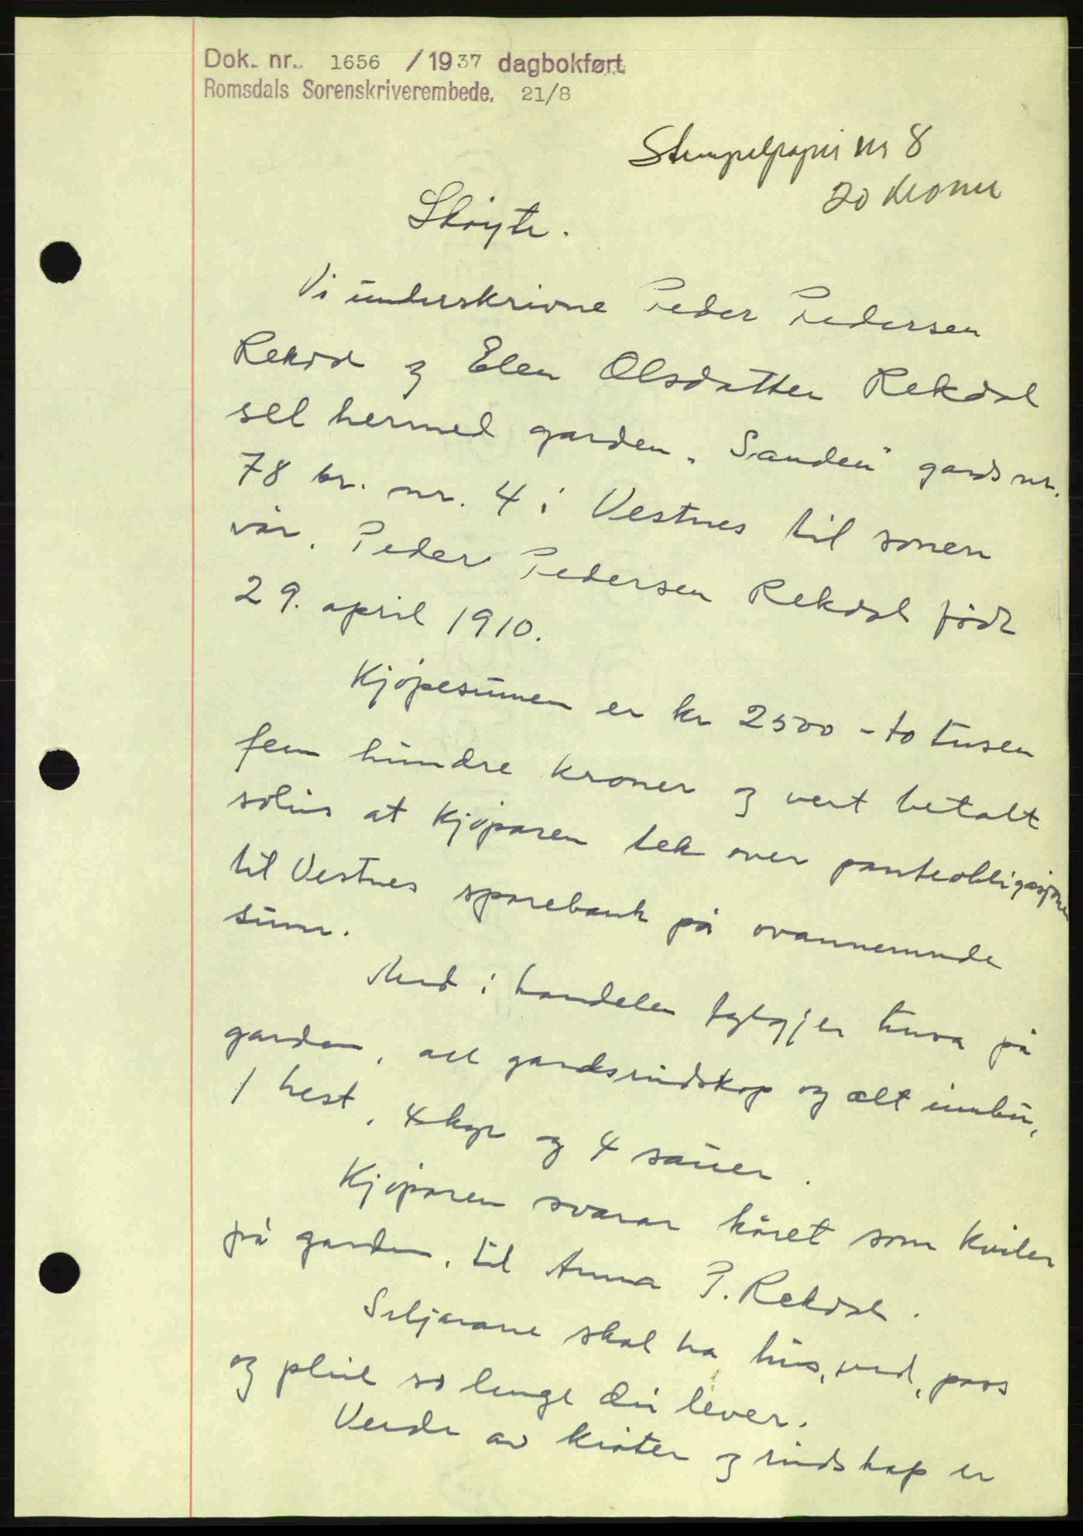 Dok. nr. 1656 / 1937 dagbokført.
Romsdals Sorenskriverembede. 21/8
Stempelpapir nr 8
20 kroner
Skøyte.
Vi underskrivne Peder Pedersen
Rekdal og Elen Olsdatter Rekdal
sel hermed garden "Sanden" gards nr.
78 br. nr. 4 i Vestnes til sonen
vår, Peder Pedersen Rekdal født
29. april 1910.
Kjøpesumen er kr 2500 - to tusen
fem hundre kroner og vert betalt
soleis at kjøparen tek over panteobligasjonen
til Vestnes sparebank på ovannemnde
sum.
Med i handelen fylgjer husa på
garden, all gardsreidskap og alt innbu,
1 hest, 4 kyr og 4 sauer.
Kjøparen svarar kåret som kviler
på garden, til Anna P. Rekdal.
Seljarane skal ha hus, ved, pass
og pleie so lenge dei lever.
Verde av krøter og reidskap er